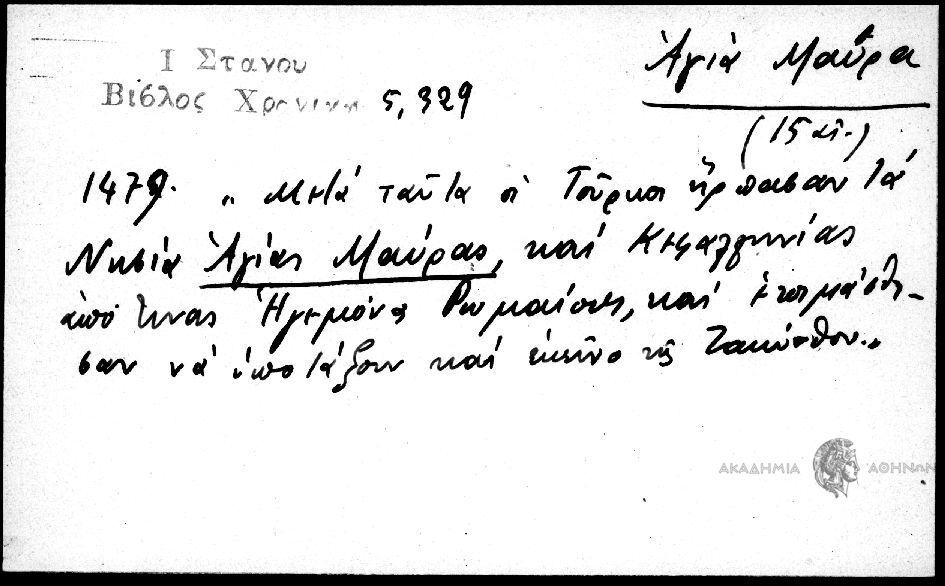 Ι Στανου
Βίβλος Χρονικη 5, 329
Ἁγία Μαῦρα
(15 αἰ.)
1479. „ Μετά ταῦτα οἱ Τοῦρκοι ἥρπασαν τά
Νησία Ἁγίας Μαύρας, καί Κεφαλληνίας
ἀπό τινας Ἡγεμόνας Ρωμαίους, καί ἑτοιμάσθη-
σαν νά ὑποτάξουν καί ἐκεῖνο τῆς Ζακύνθου„
ΑΚΑΔΗΜΙΑ ΑΘΗΝΩΝ